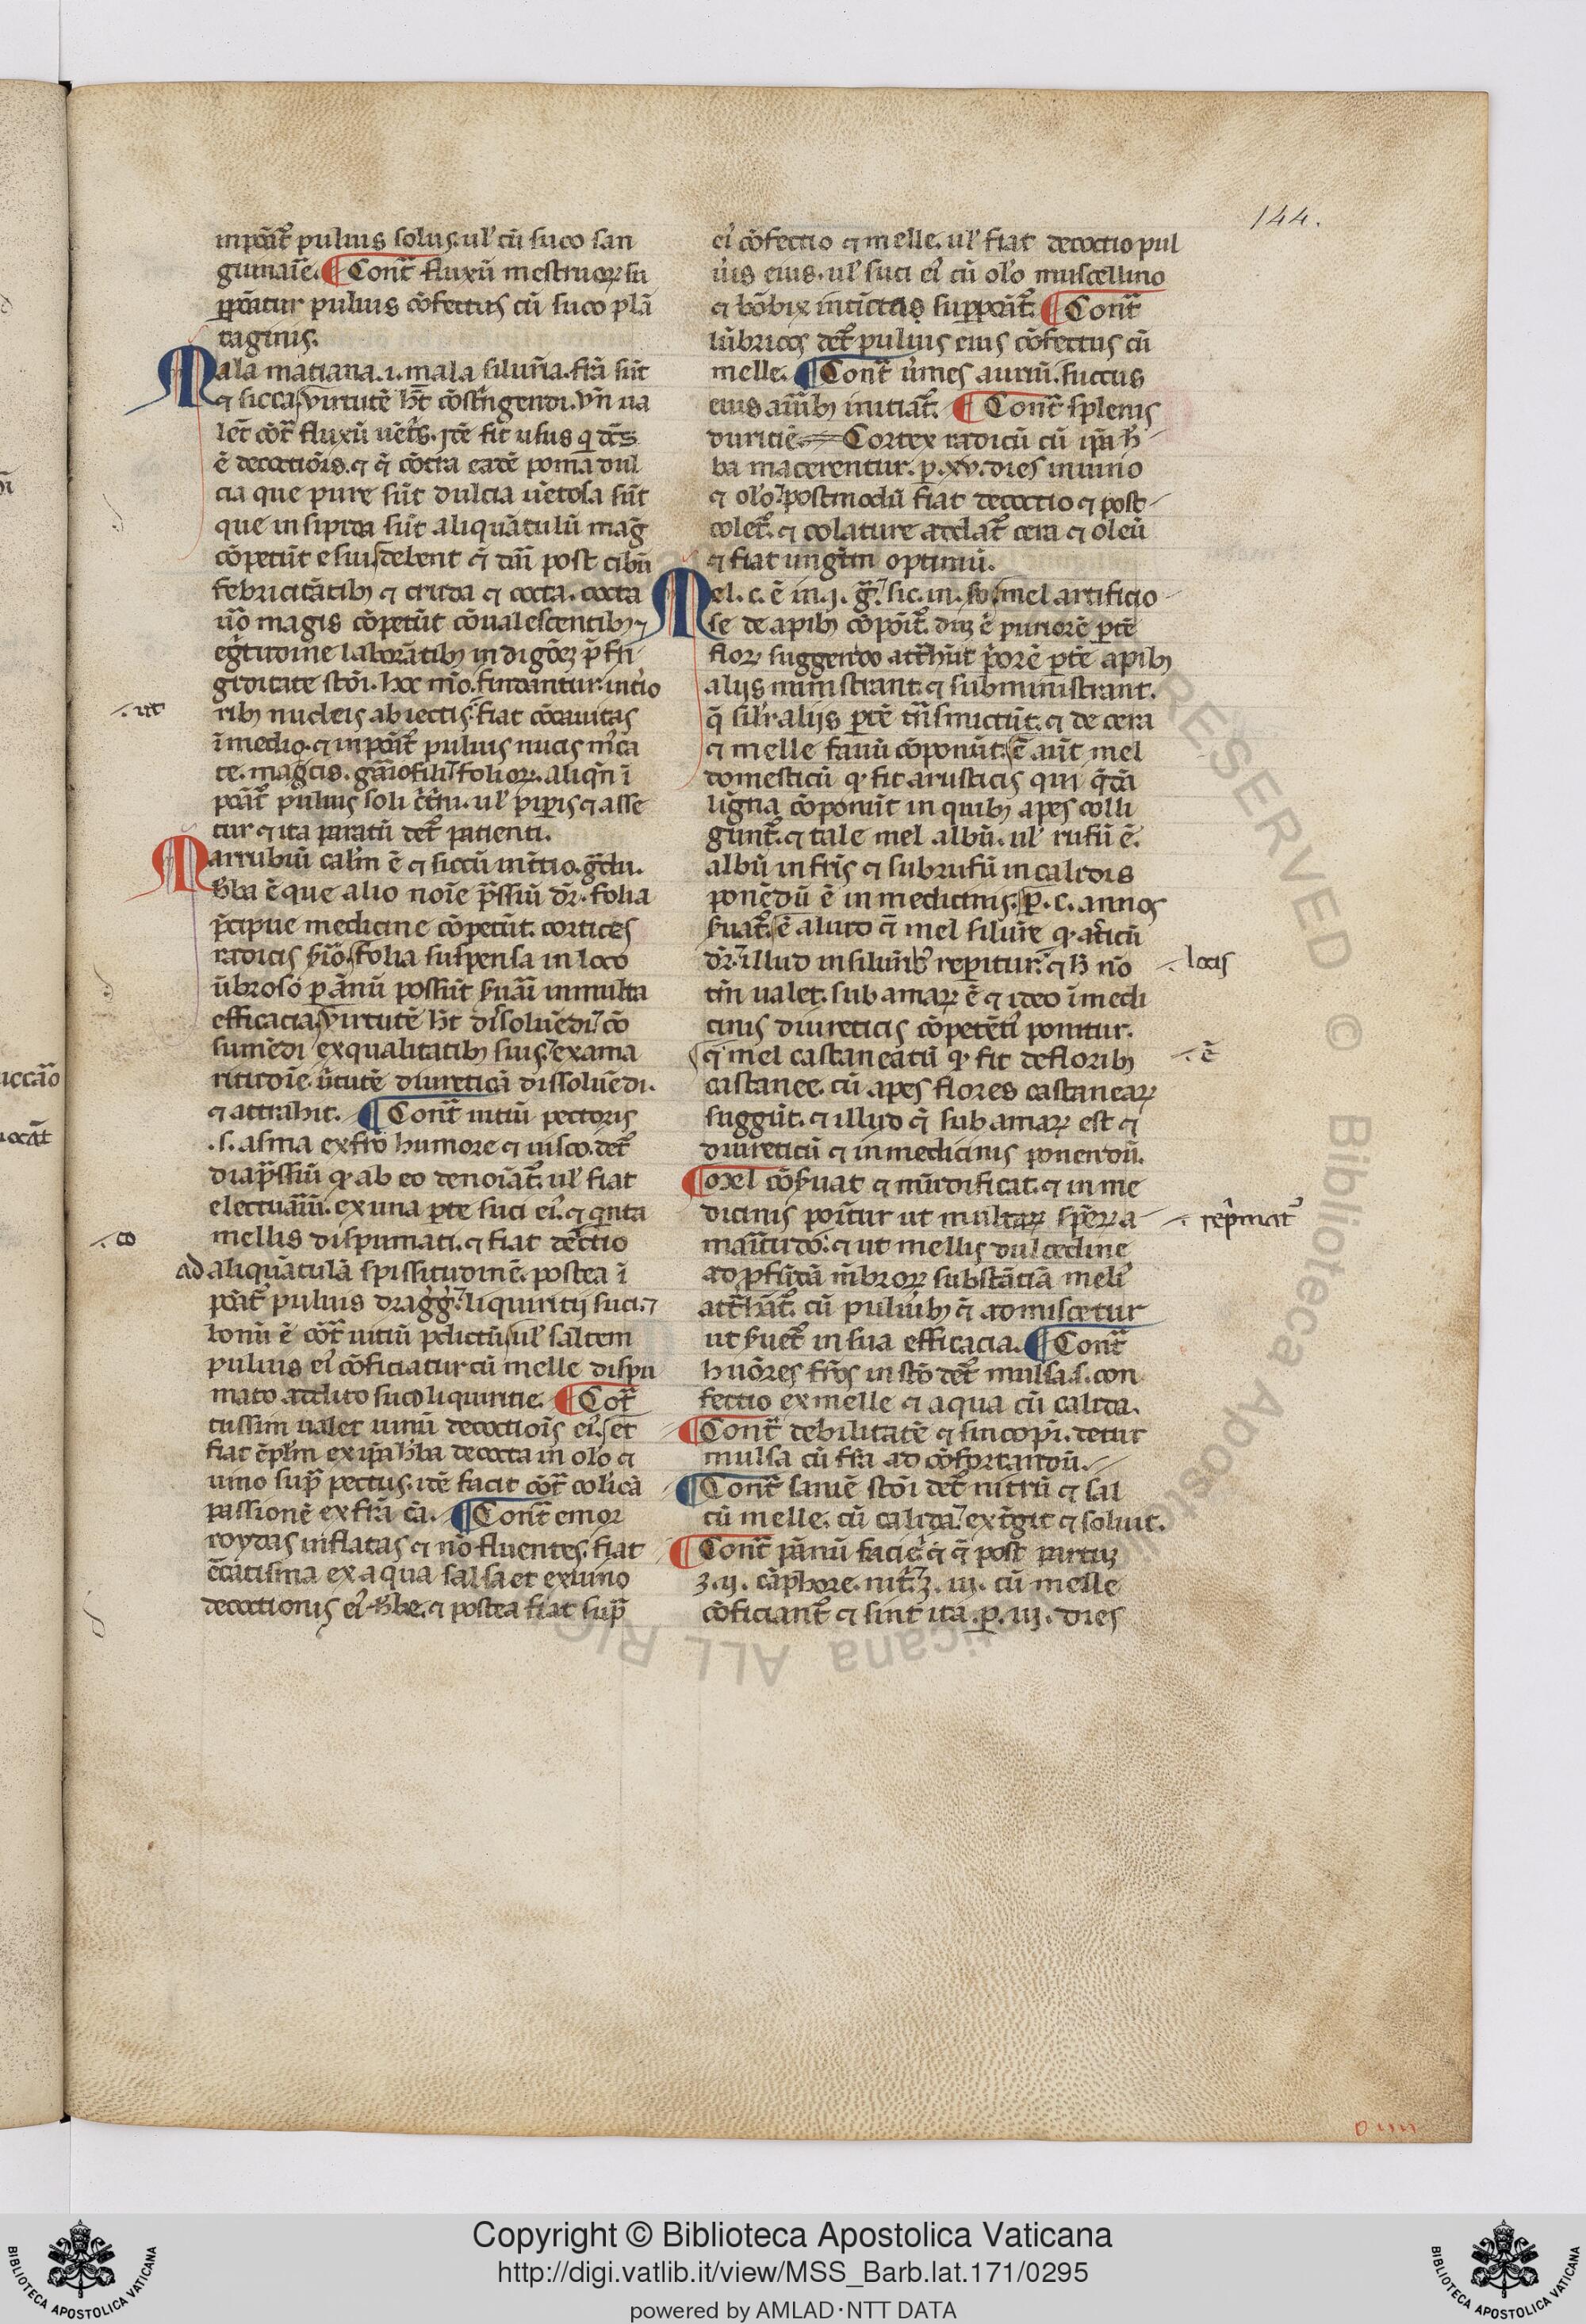 144.
inponat̃ puluis solus. ul̃ cũ suco san
guinaĩe. ¶ Contᷓ fluxũ mẽstruoꝝ su
pponatur puluis cõfectus cũ suco plã
taginis.
Mala maciana .i. mala siluẽs̃. fr̃a sũt
⁊ sicca virtutẽ hñt cõstrĩgendi. vñ ua
let cõtᷓ fluxũ uẽtris. Itẽ fit usus
ẽ decoctiõis. ⁊ cõtra eadẽ poma dul
cia que pure sũt dulcia uẽtosa sũt
que insipida sũt aliquãtulũ mag̃
cõpetũt esui debent post cibũ
febricitãtibꝫ ⁊ cruda ⁊ cocta. cocta
ũo magis cõpetũt cõualescentibꝫ ⁊
egritudine laborãtibꝫ indigõẽ ꝓ fri
giditate stõi. hoc mõ. findantur. intio
ribꝫ nucleis abiectis. fiat cõcauitas
ĩ medio. ⁊ inponat̃ puluis nucis mᷤca
te. macis. gariofili ⁊ folioꝝ. aliqñ ĩ
ponat̃ puluis soli cĩmi. ul̃ piperis ⁊ asse
tur ⁊ ita paratũ det̃ patienti.
Marrubiũ cal̃m ẽ ⁊ siccũ in tĩo. gᷓdu.
hba ẽ que alio noĩe pᷓssiũ dr̃. folia
p̃cipue medicine cõpetũt. cortices
radicis folia suspensa in loco
ũbroso ꝑ ãnũ possũt ẜuari in multa
efficacia virtutẽ hñt dissoluẽdi ⁊ cõ
sumẽdi ex qualitatibꝫ suis. ex ama
ritudĩe. ũtutẽ diureticã dissoluẽdi.
⁊ attrahit. ¶ Contᷓ uitiũ pectoris
.s. asma ex fr̃o humore ⁊ uisco. det̃
diapᷓssiũ ꝙ ab eo denoiãt̃. ul̃ fiat
electuariũ. ex una ꝑte suci ei. ⁊ quinta
mellis dispumati. ⁊ fiat dectio
ad aliquãtulã spissitudinẽ. postea ĩ
ponat̃ puluis dragg̃. liquiritij suci ⁊
bonũ ẽ cõtᷓ uitiũ ꝓdictũ ul̃ saltem
puluis ei cõficiatur cũ melle dispu
mato. addito suco liquiritie. ¶ Cõtᷓ
tussim ualet uinũ decoctiõis ei. et
fiat ẽpl̃m ex ip̃a hba decocta in oĩo ⁊
uino supᷓ pectus. itẽ facit cõtᷓ colicã
passionẽ ex fr̃a cã. ¶ Contᷓ emor
roydas inflatas ⁊ nõ fluentes. fiat
ẽcatisma ex aqua salsa et ex uino
decoctionis ei hbe. ⁊ postea fiat supᷓ
. ut
. co
ei cõfectio ⁊ melle. ul̃ fiat decoctio pul
uis eius. ul̃ suci ei cũ oĩo muscellino
⁊ bõbix intĩctas supponat̃. ¶ Contᷓ
lũbricos det̃ puluis eius cõfectus cũ
melle. ¶ Contᷓ ũmes auriũ. succus
eius auribꝫ initiat̃. ¶ Contᷓ splenis
duritiẽ. Cortex radicũ cũ ip̃a h
ba macerentur. ꝑ .xv. dies in uino
⁊ oĩo. postmodũ fiat decoctio ⁊ post
colet̃. ⁊ colature addat̃ cera ⁊ oleũ
⁊ fiat ungtm optimũ.
Mel .c. ẽ in .j. gᷓ. sic. in. mel artificio
se de apibꝫ cõpõit̃. duꝫ ẽ puriorẽ ꝑtẽ
floꝝ suggendo att̃hũt ꝑtẽ apibꝫ
alijs ministrant. ⁊ subministrant.
q̃ silr̃ alijs ꝑtẽ tñsmictũt. ⁊ de cera
⁊ melle fauũ cõponũt. ẽ aũt mel
domesticũ ꝙ fit a rusticis qui q̃dã
ligna cõponũt in quibꝫ apes colli
gunt̃. ⁊ tale mel albũ. ul̃ rufũ ẽ.
albũ in fr̃is ⁊ subrufũ in calidis
ponẽdũ ẽ in medicinis. ꝑ .c. annos
ẜuat̃. ẽ aliud mel silũre
dr̃. illud in siluẽribꝫ reperitur. ⁊ h̃ nõ
tm̃ ualet. sub amaꝝ ẽ ⁊ ideo ĩ medi
cinis diureticis cõpetẽti ponitur.
mel castaneatũ ꝙ fit de floribꝫ
castanee. cũ apes flores castaneaꝝ
suggũt. ⁊ illud sub amaꝝ est ⁊
diureticũ ⁊ in medicinis ponendũ.
¶ Mel cõẜuat ⁊ mũdificat. ⁊ in me
dicinis ponitur ut multaꝝ spẽꝝ a
maritudo. ⁊ ut mellis dulcedine
ad ꝓfũdã mẽbroꝝ substãtiã
att̃hãt̃. cũ puluibꝫ admiscetur
ut ẜuet̃ in sua efficacia. ¶ Contᷓ
huõres fr̃os in stõ det̃ mulsa .s. con
fectio ex melle ⁊ aqua cũ calida.
¶ Contᷓ debilitatẽ ⁊ sincopi. detur
mulsa cũ fr̃a ad cõfortandũ.
¶ Contᷓ saniẽ stõi det̃ nitrũ ⁊ sal
cũ melle. cũ calida. extgit ⁊ soluit.
¶ Contᷓ pãnũ faciei post partuꝫ
ʒ. ij. cãphore. nitᷓ. ʒ. iij. cũ melle
cõficiant̃ ⁊ sint ita. ꝑ. iij. dies
. locis
. ẽ
. rep̃mat̃
Copyright © Biblioteca Apostolica Vaticana
http://digi.vatlib.it/view/MSS_Barb.lat.171/0295
powered by AMLAD·NTT DATA
BIBLIOTECA APOSTOLICA VATICANA
BIBLIOTECA APOSTOLICA VATICANA